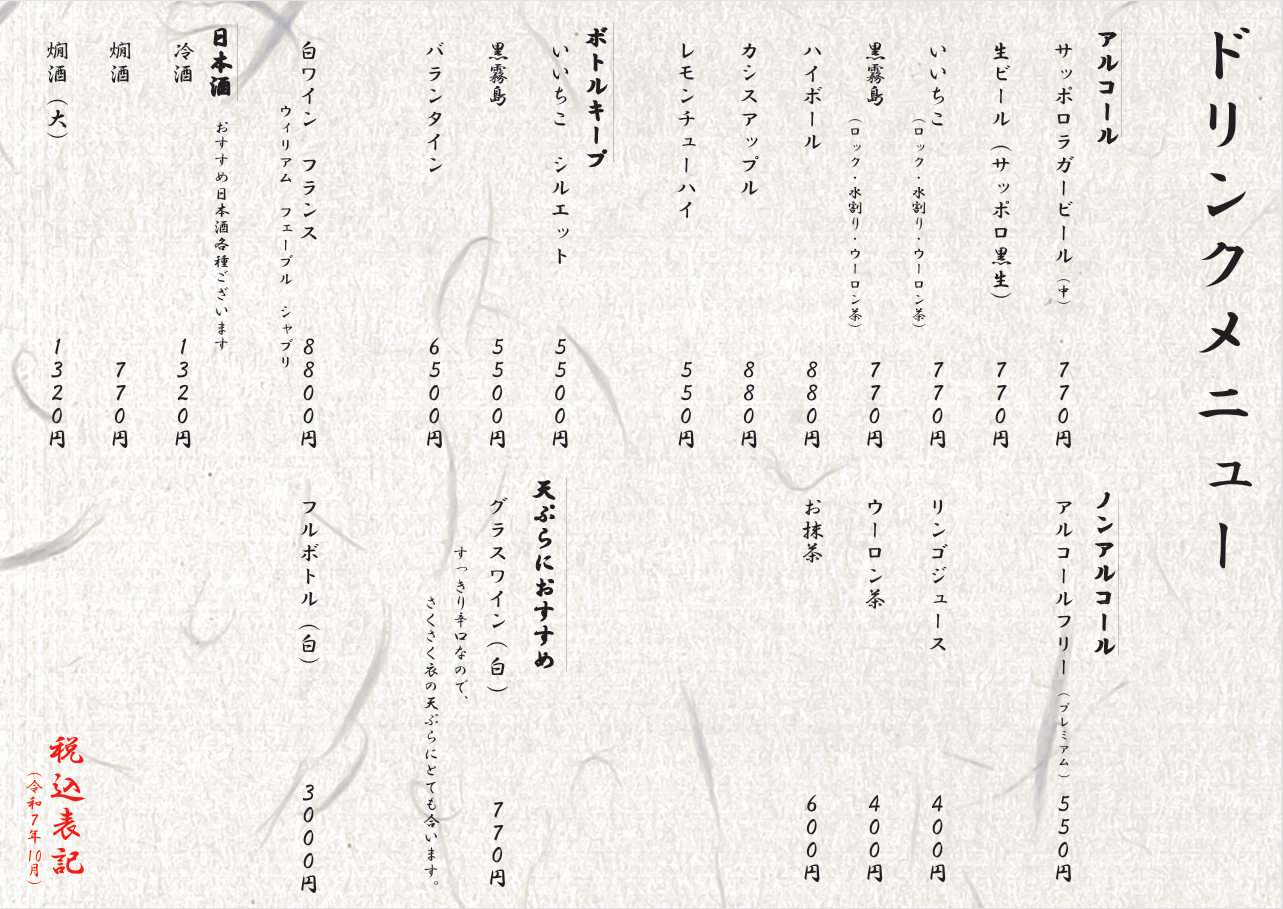 ドリンクメニュー
アルコール
サッポロラガービール（中） 770円
生ビール（サッポロ黒生） 770円
いいちこ 770円
（ロック・水割り・ウーロン茶）
黒霧島 770円
（ロック・水割り・ウーロン茶）
ハイボール 880円
カシスアップル 880円
レモンチューハイ 550円
ボトルキープ
いいちこ シルエット 5500円
黒霧島 5500円
バランタイン 6500円
白ワイン フランス 8800円
ウィリアム フェーブル シャブリ
日本酒
おすすめ日本酒各種ございます
冷酒 1320円
燗酒 770円
燗酒（大） 1320円
ノンアルコール
アルコールフリー（プレミアム） 550円
リンゴジュース 400円
ウーロン茶 400円
お抹茶 600円
天ぷらにおすすめ
グラスワイン（白） 770円
すっきり辛口なので、
さくさく衣の天ぷらにとても合います。
フルボトル（白） 3000円
税込表記
（令和7年10月）